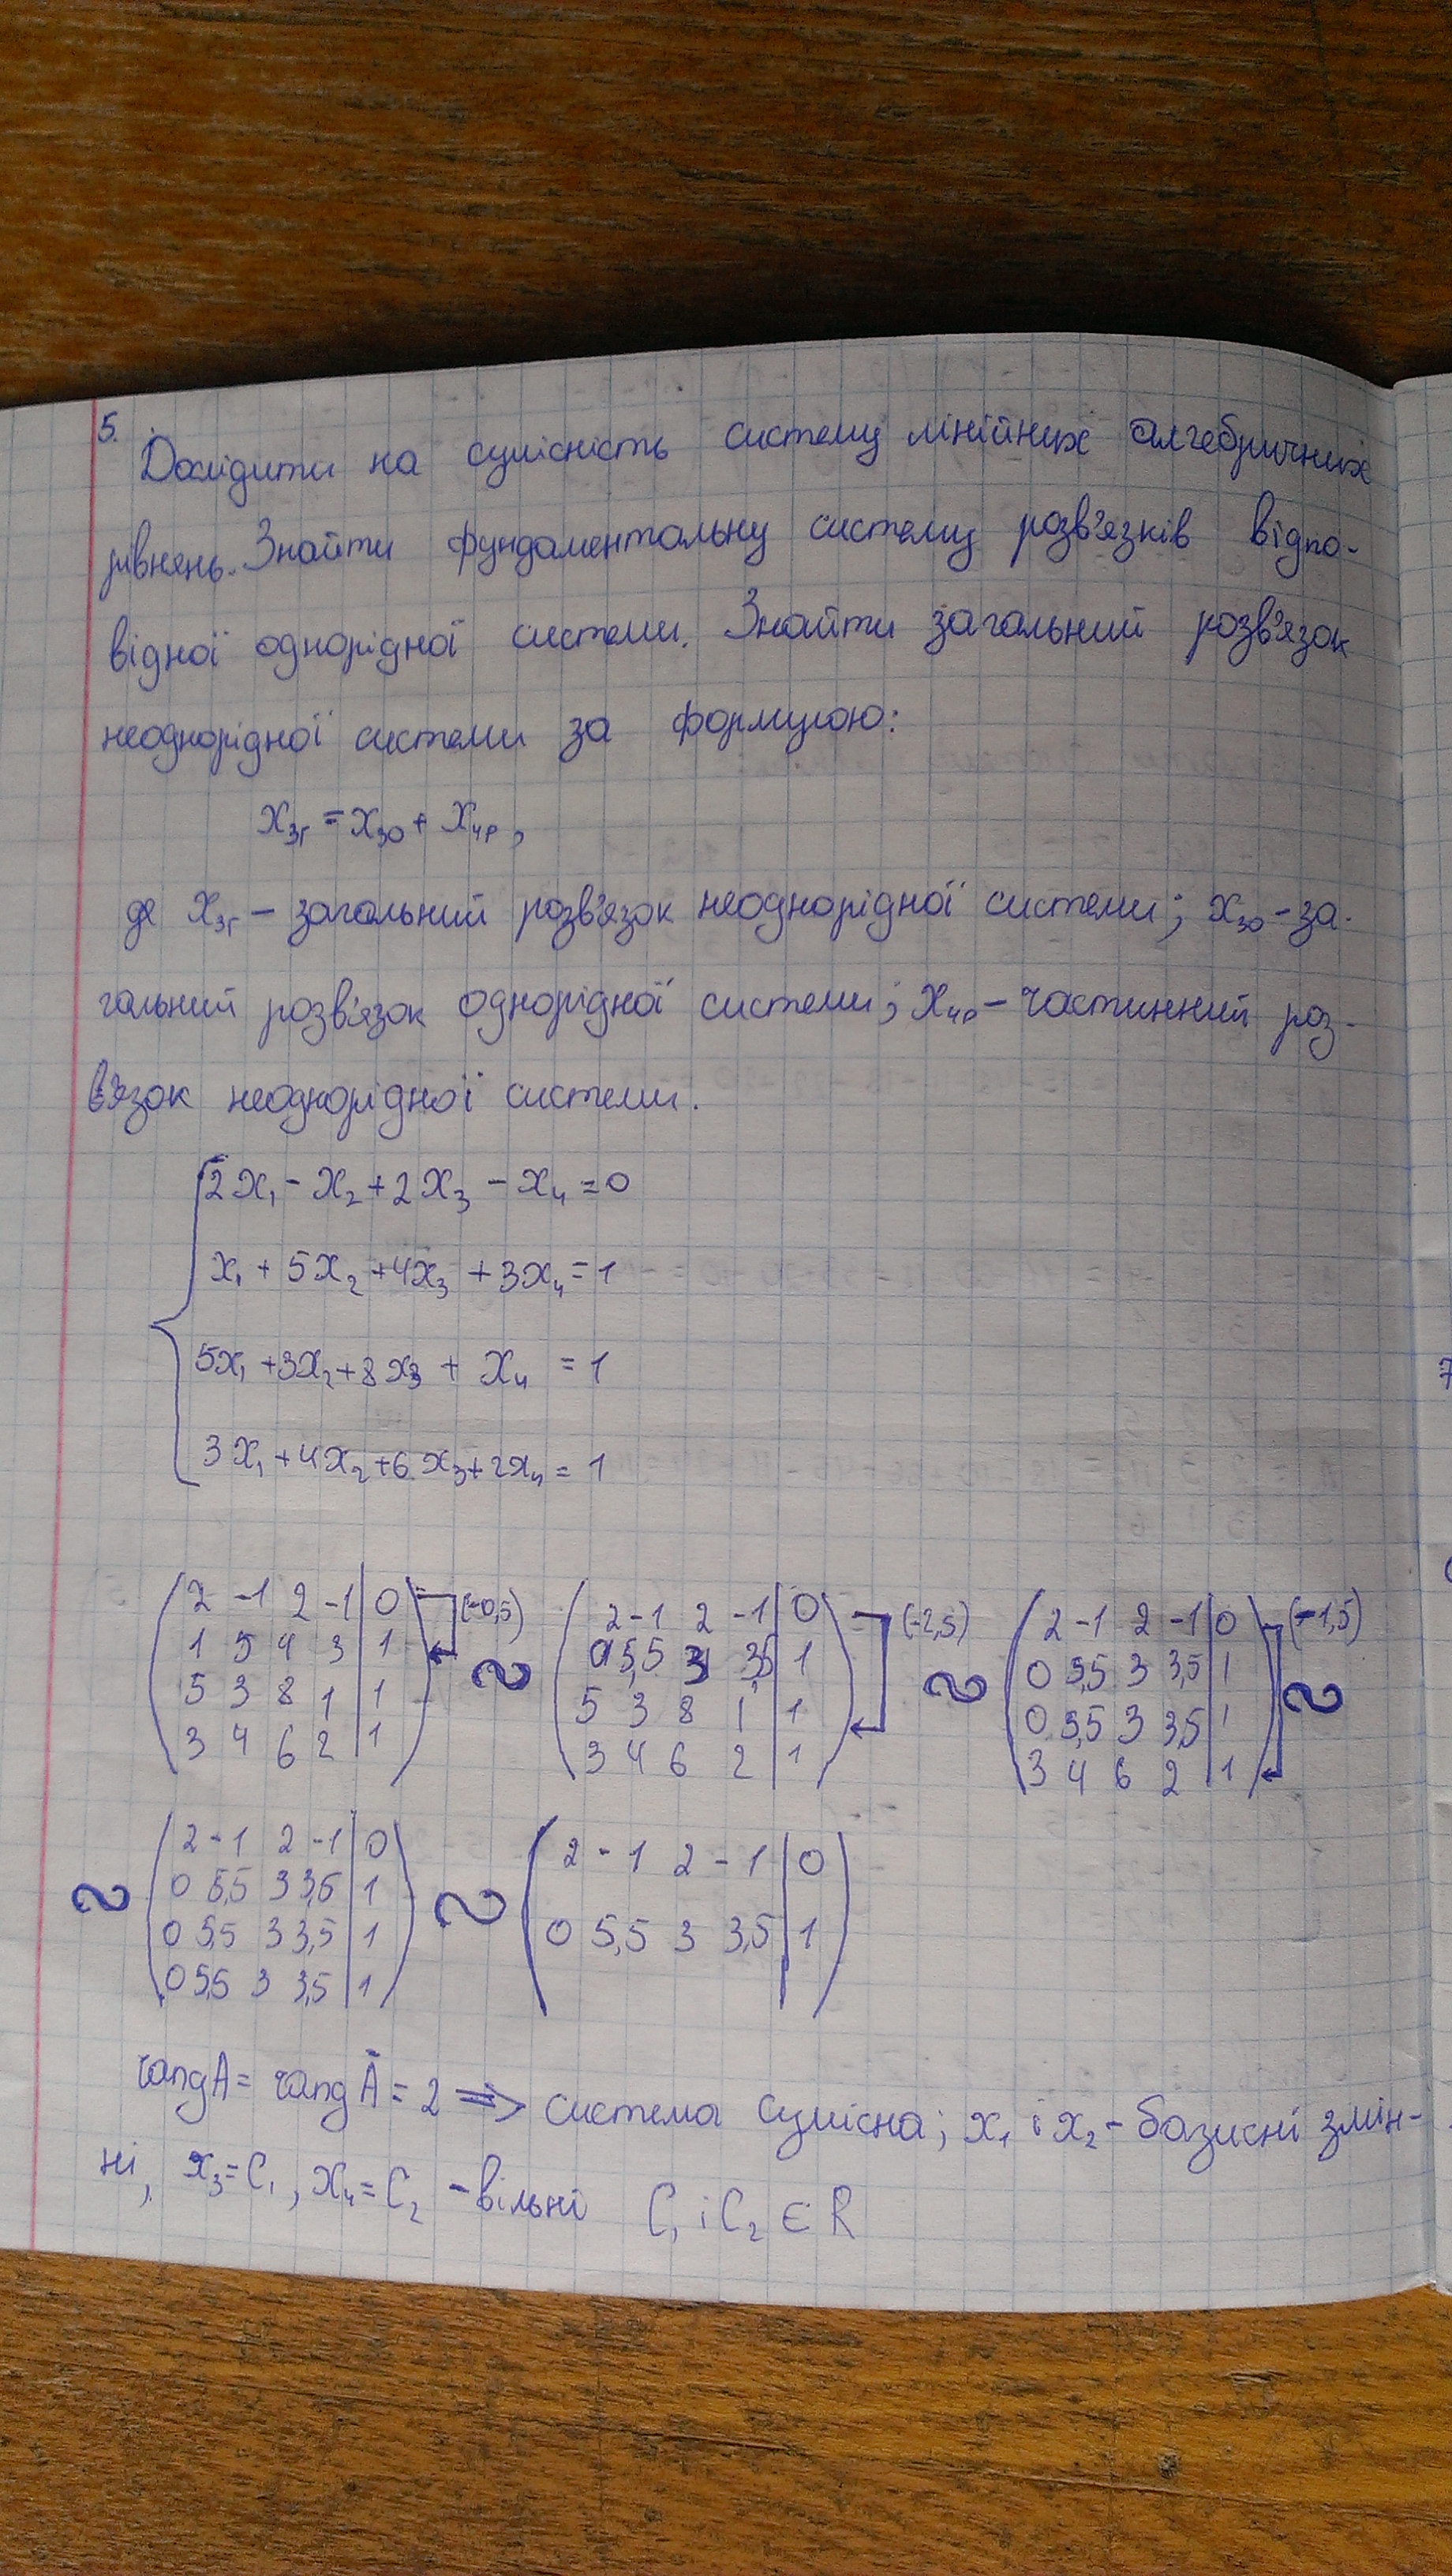 5.
Дослідити на сумісність систему лінійних алгебричних
рівнянь. Знайти фундаментальну систему розв'язків відпо-
відної однорідної системи. Знайти загальний розв'язок
неоднорідної системи за формулою:
x₃г = x₃₀ + xчр,
де x₃г – загальний розв'язок неоднорідної системи; x₃₀ – за-
гальний розв'язок однорідної системи; xчр – частинний роз-
в'язок неоднорідної системи.
2x₁ - x₂ + 2x₃ - x₄ = 0
x₁ + 5x₂ + 4x₃ + 3x₄ = 1
5x₁ + 3x₂ + 8x₃ + x₄ = 1
3x₁ + 4x₂ + 6x₃ + 2x₄ = 1
2 -1 2 -1 | 0 (-0,5) 2 -1 2 -1 | 0 (-2,5) 2 -1 2 -1 | 0 (-1,5)
1 5 4 3 | 1 ~ 0 5,5 3 3,5 | 1 ~ 0 5,5 3 3,5 | 1 ~
5 3 8 1 | 1 5 3 8 1 | 1 0 5,5 3 3,5 | 1
3 4 6 2 | 1 3 4 6 2 | 1 3 4 6 2 | 1
2 -1 2 -1 | 0 2 -1 2 -1 | 0
~ 0 5,5 3 3,5 | 1 ~
0 5,5 3 3,5 | 1 0 5,5 3 3,5 | 1
0 5,5 3 3,5 | 1
rang A = rang Ā = 2 => система сумісна; x₁ і x₂ – базисні змін-
ні, x₃ = C₁, x₄ = C₂ – вільні C₁ і C₂ ∈ R
7